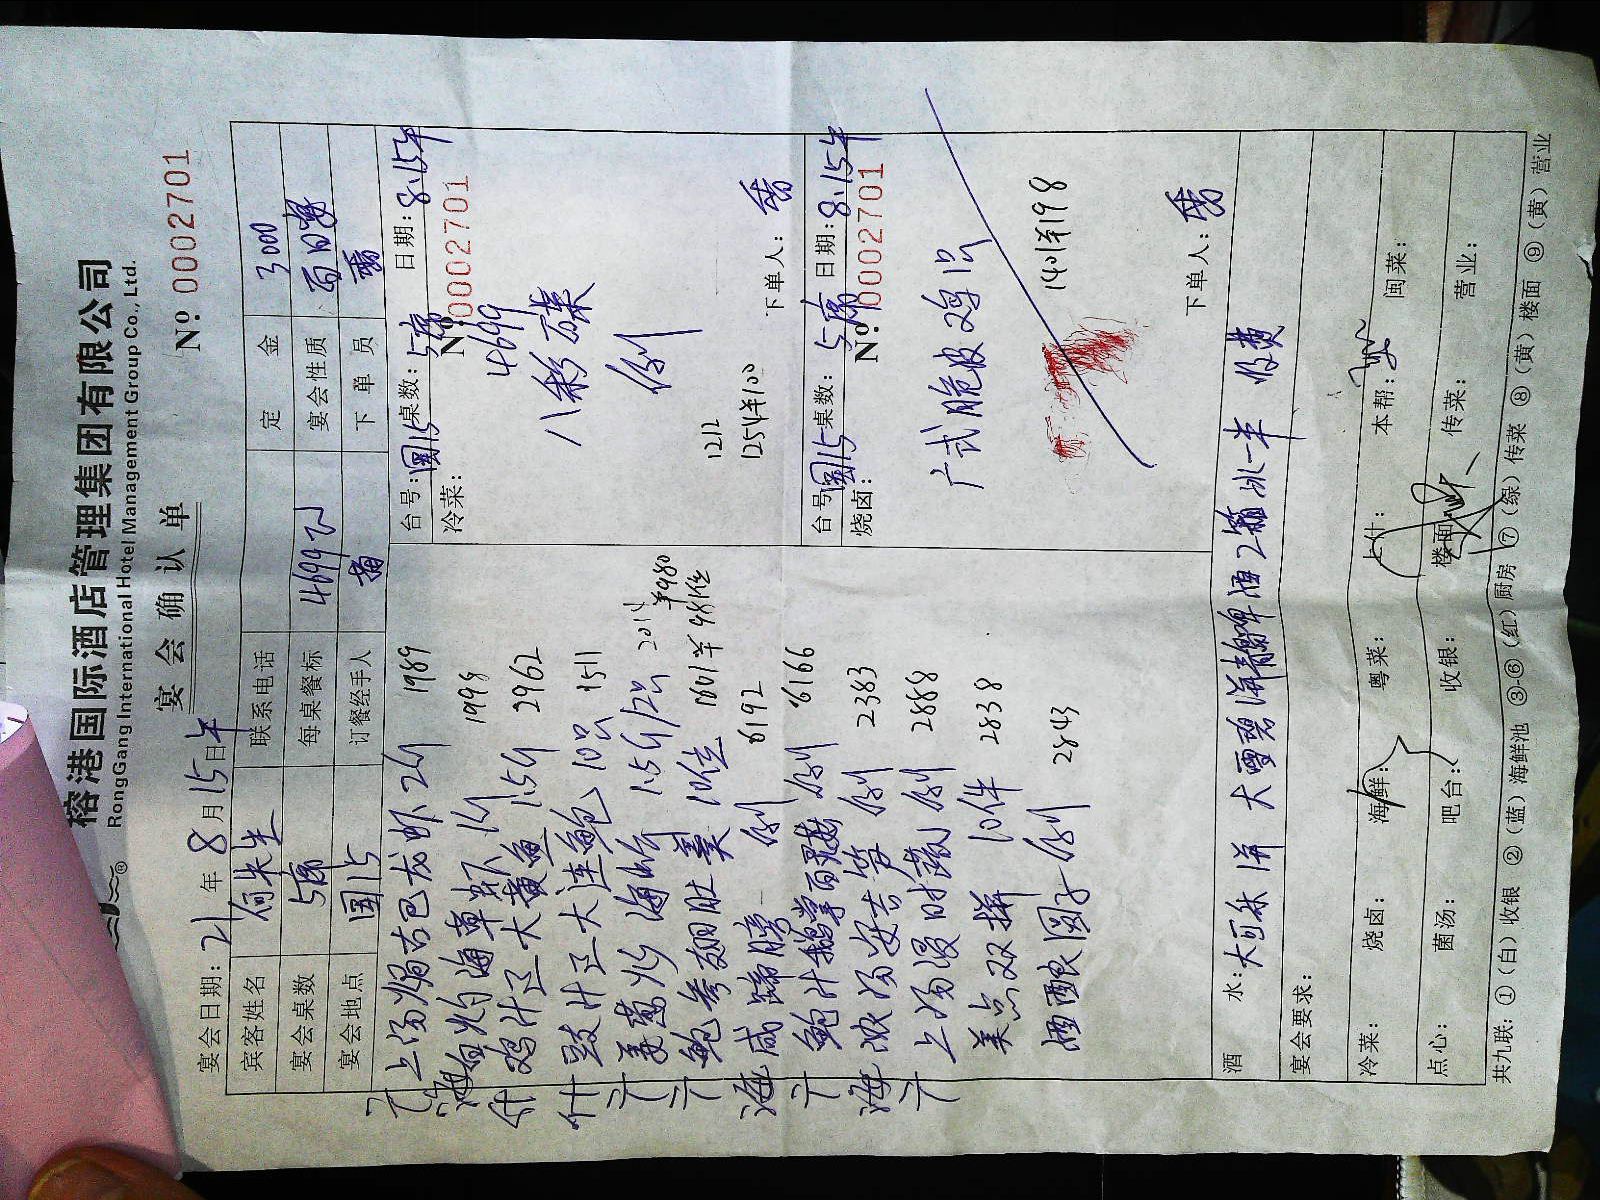 榕港国际酒店管理集团有限公司
RongGang International Hotel Management Group Co., Ltd.
®
宴会确认单
Nº 0002701
宴会日期: 21 年 8 月 15 日 午
宾客姓名 何先生 联系电话 定金 3000
宴会桌数 5席 每桌餐标 4699 宴会性质 百日宴
宴会地点 国15 订餐经手人 下单员
上汤焗古巴龙虾 2斤 1989
白灼海草虾 1斤 1998
鸡汁 大黄鱼 1.5斤 2962
豉汁 大连鲍 10只 1511
姜葱炒海蟹 1.5斤/2只 ¥980
鲍参翅肚羹 10位 1801 ¥98/位
海 咸蹄膀 例 6192
鲍汁鹅掌 例 6166
海 浓汤 例 2383
上汤浸时蔬 例 2888
美点双拼 10件 2838
酒酿圆子 例 2843
台号: 国15 桌数: 5席 日期: 8.15午
冷菜: Nº 0002701
4699
八彩碟
例
1212
1254 ¥100
下单人:
台号: 国15 桌数: 5席 日期: 8.15午
烧卤: Nº 0002701
广式脆皮鸡
1401 ¥198
下单人:
酒水: 大可乐1瓶 大雪碧1瓶 啤酒2箱 冰一半
宴会要求:
冷菜: 烧卤: 海鲜: 粤菜: 上什: 本帮: 闽菜:
点心: 菌汤: 吧台: 收银: 楼面: 传菜: 营业:
共九联: ①(白)收银 ②(蓝)海鲜池 ③-⑥(红)厨房 ⑦(绿)传菜 ⑧(黄)楼面 ⑨(黄)营业